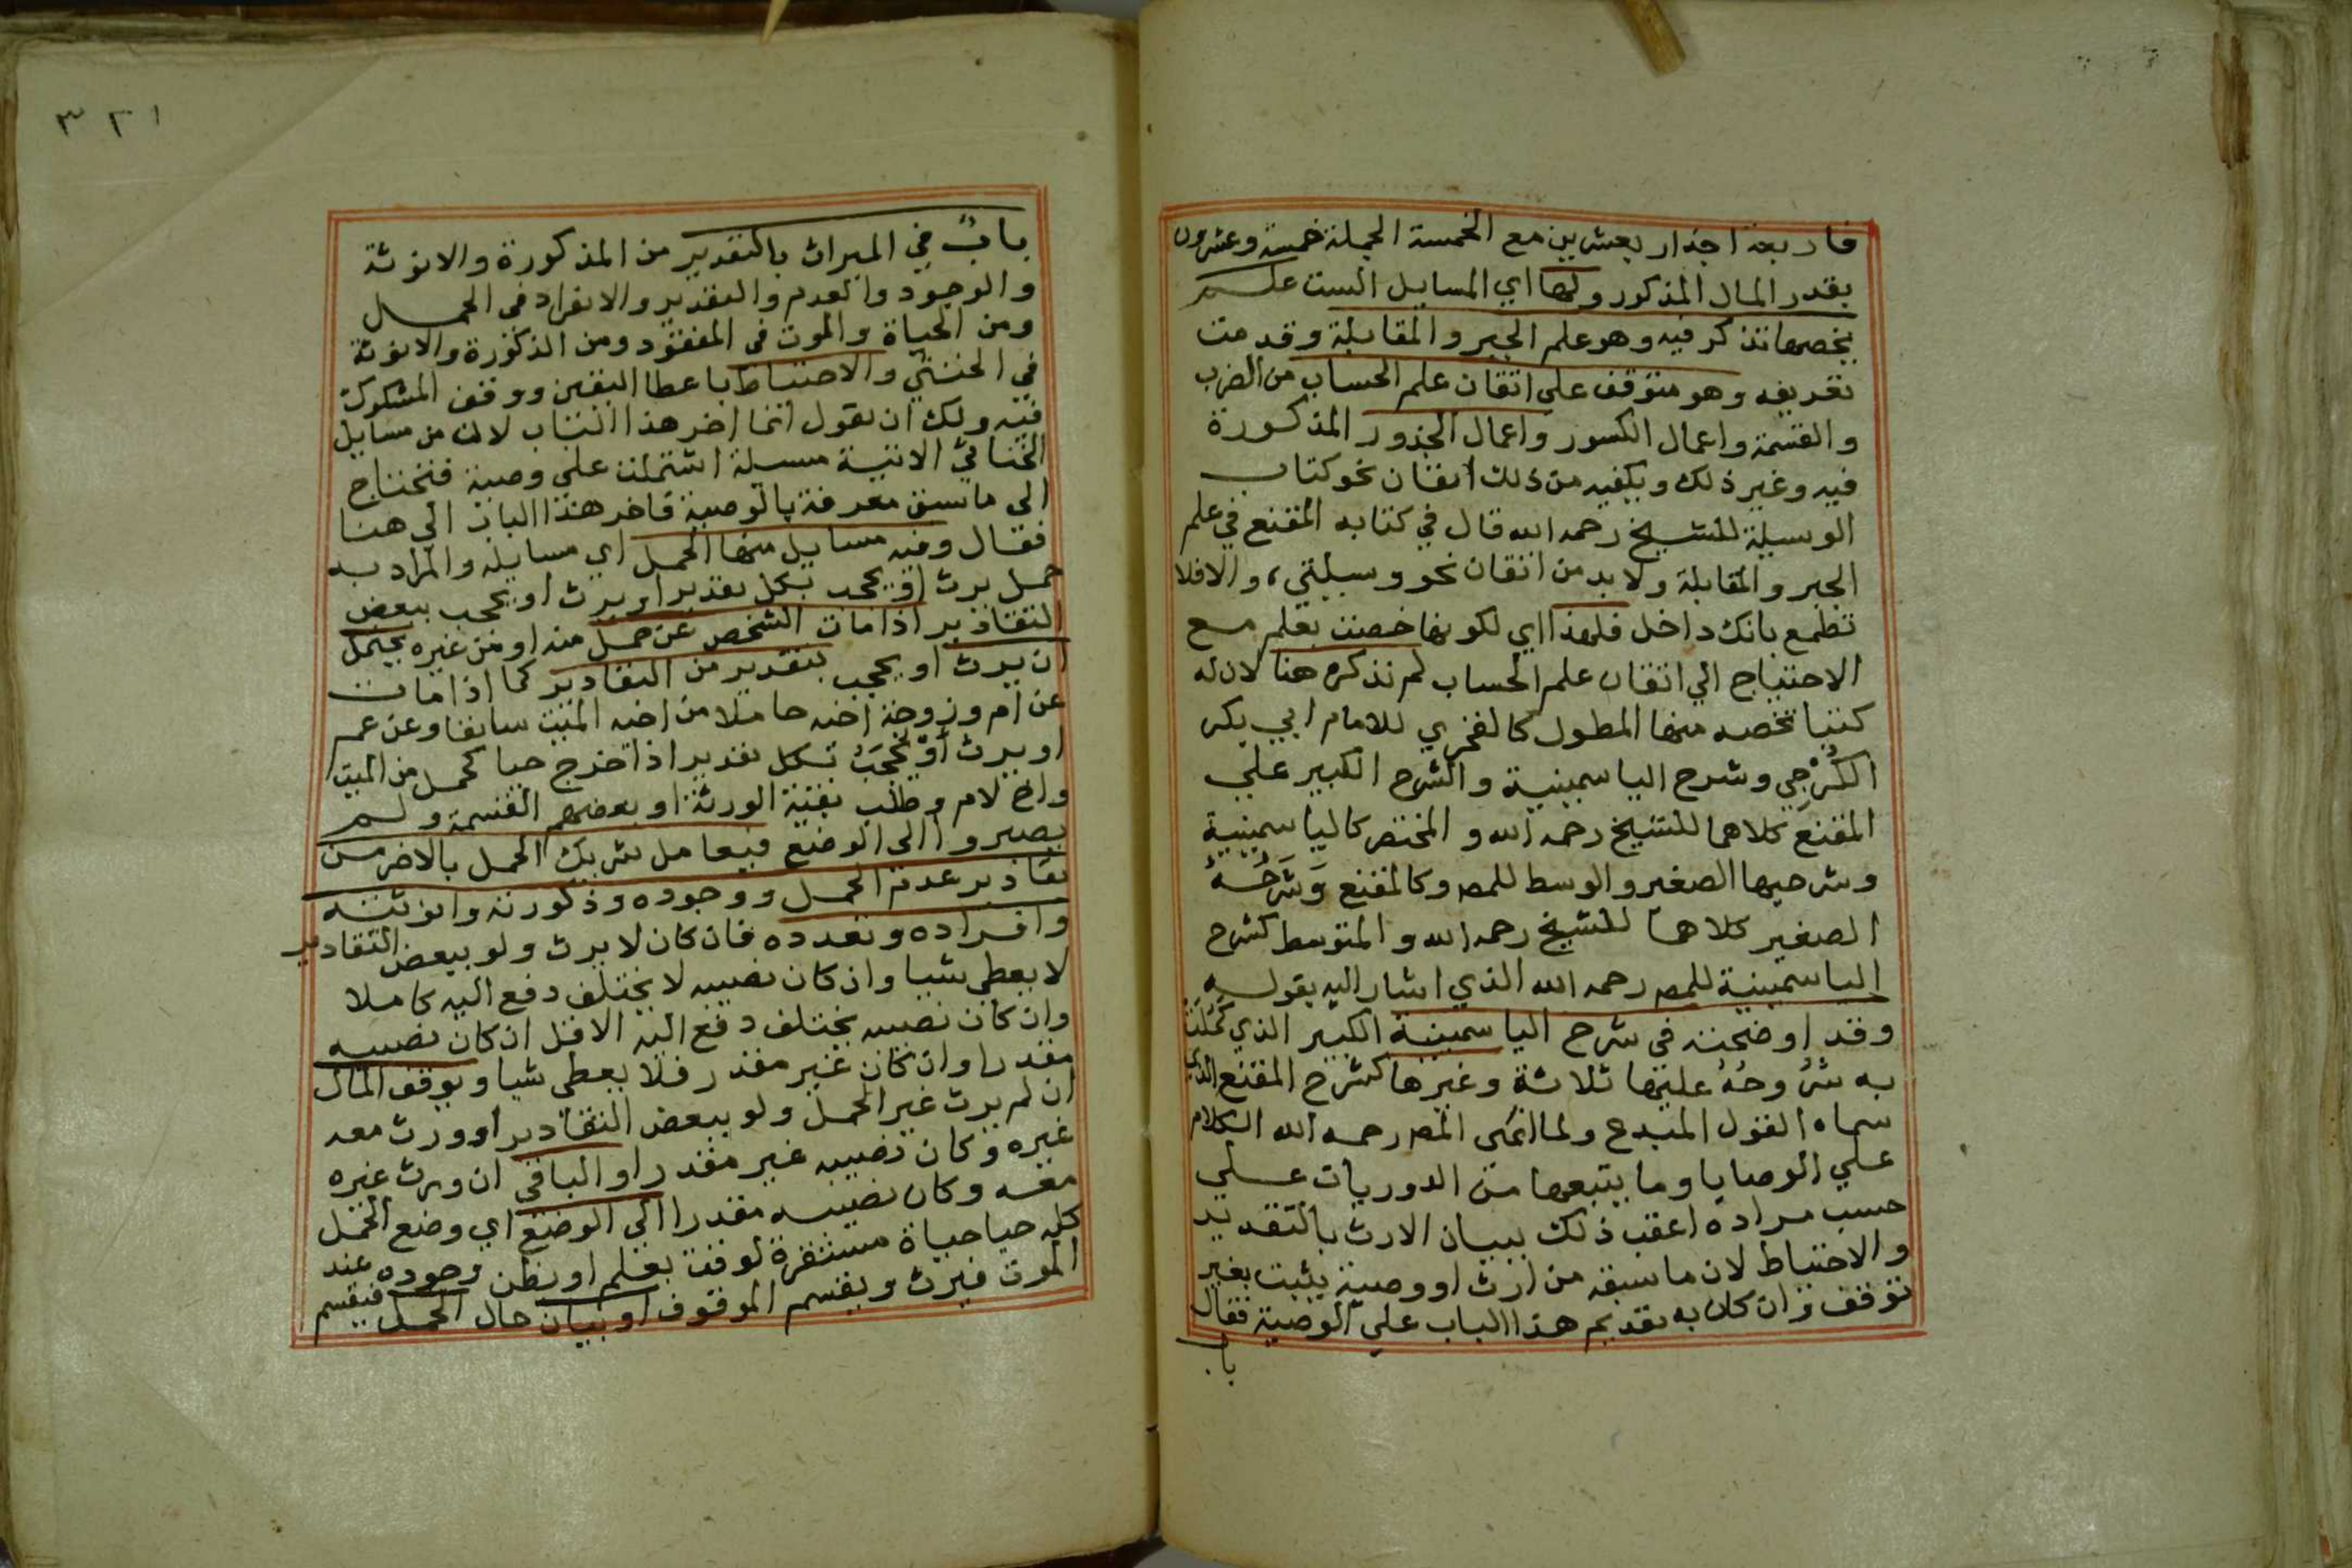 فاربعة اجذار بعشرين مع الخمسة الجملة خمسة وعشرون
بقدر المال المذكور ولها اي المسايل الست علم
يخصها تذكر فيه وهو علم الجبر والمقابلة وقد مت
تعريفه وهو متوقف على اتقان علم الحساب من الضرب
والقسمة واعمال الكسور واعمال الجذور المذكورة
فيه وغير ذلك ويكفيه من ذلك اتقان نحو كتاب
الوسيلة للشيخ رحمه الله قال في كتابه المقنع في علم
الجبر والمقابلة ولا بد من اتقان نحو وسيلتي، والافلا
تطمع بانك داخل فلهذا اي لكونها خصت بعلم مع
الاحتياج الي اتقان علم الحساب لم نذكره هنا لان له
كتبا تخصه منها المطول كالفخري للامام ابي بكر
الكَرْجِي وشرح الياسمينية والشرح الكبير علي
المقنع كلاهما للشيخ رحمه الله والمختصر كالياسمينية
وشرحيها الصغير والوسط للمص وكالمقنع وَشَرْحُهُ
الصغير كلاهما للشيخ رحمه الله والمتوسط كشرح
الياسمينية للمص رحمه الله الذي اشار اليه بقوله
وقد اوضحته في شرح الياسمينية الكبير الذي كَمُلَتْ
به شُرُوحُهُ عليها ثلاثة وغيرها كشرح المقنع الذي
سماه القول المبدع ولما انهى المص رحمه الله الكلام
علي الوصايا وما يتبعها من الدوريات علي
حسب مراده اعقب ذلك ببيان الارث بالتقدير
والاحتياط لان ما سبقه من ارث او وصية يثبت بغير
توقف وان كان به تقديم هذا الباب علي الوصية فقال
باب
٣٢١
بابٌ في الميراث بالتقدير من المذكورة والانوثة
والوجود والعدم والتقدير والانفراد في الحمل
ومن الحياة والموت في المفقود ومن الذكورة والانوثة
في الخنثي والاحتياط باعطا اليقين ووقف المشكوك
فيه ولك ان تقول انما اخر هذا الباب لان من مسايل
الخناثي الاتية مسيلة اشتملت علي وصية فتحتاج
الى ما سبق معرفة بالوصية فاخر هذا الباب الي هنا
فقال وفيه مسايل منها الحمل اي مسايله والمراد به
حمل يرث او يحجب بكل تقدير او يرث او يحجب ببعض
التقادير اذا مات الشخص عن حمل منه او من غيره يحتمل
ان يرث او يحجب بتقدير من التقادير كما اذا مات
عن ام وزوجة اخيه حاملا من اخيه الميت سابقا وعن عم
او يرث اوْ يَحْجَبُ بكل تقدير اذا خرج حيا كحمل من الميت
واخ لام وطلب بقية الورثة او بعضهم القسمة ولم
يصبروا الى الوضع فيعامل شريك الحمل بالاضر من
تقادير عدم الحمل ووجوده وذكورته وانوثته
وافراده وتعدده فان كان لا يرث ولو ببعض التقادير
لا يعطي شيا وان كان نصيبه لا يختلف دفع اليه كاملا
وان كان نصيبه يختلف دفع اليه الاقل ان كان نصيبه
مقدرا وان كان غير مقدر فلا يعطي شيا ويوقف المال
ان لم يرث غير الحمل ولو ببعض التقادير او ورث معه
غيره وكان نصيبه غير مقدر او الباقي ان ورث غيره
معه وكان نصيبه مقدرا الي الوضع اي وضع الحمل
كله حيا حياة مستقرة لوقت يعلم او يظن وجوده عند
الموت فيرث ويقسم الموقوف او بيان حال الحمل فيقسم